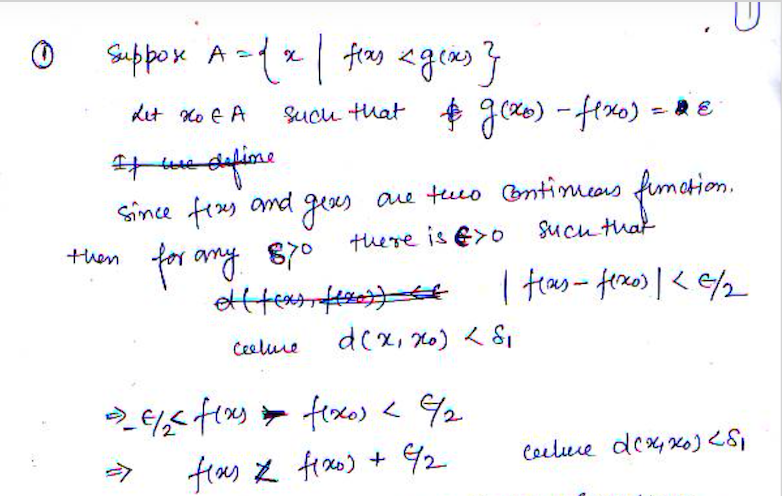 ① Suppose A = { x | f(x) < g(x) }
Let x₀ ∈ A such that g(x₀) - f(x₀) = ε
If we define
Since f(x) and g(x) are two continuous function.
then for any δ>0 there is ε>0 such that
d(f(x), f(x₀)) < ε | f(x) - f(x₀) | < ε/2
where d(x, x₀) < δ₁
⇒ -ε/2 < f(x) - f(x₀) < ε/2
⇒ f(x) < f(x₀) + ε/2 where d(x, x₀) < δ₁